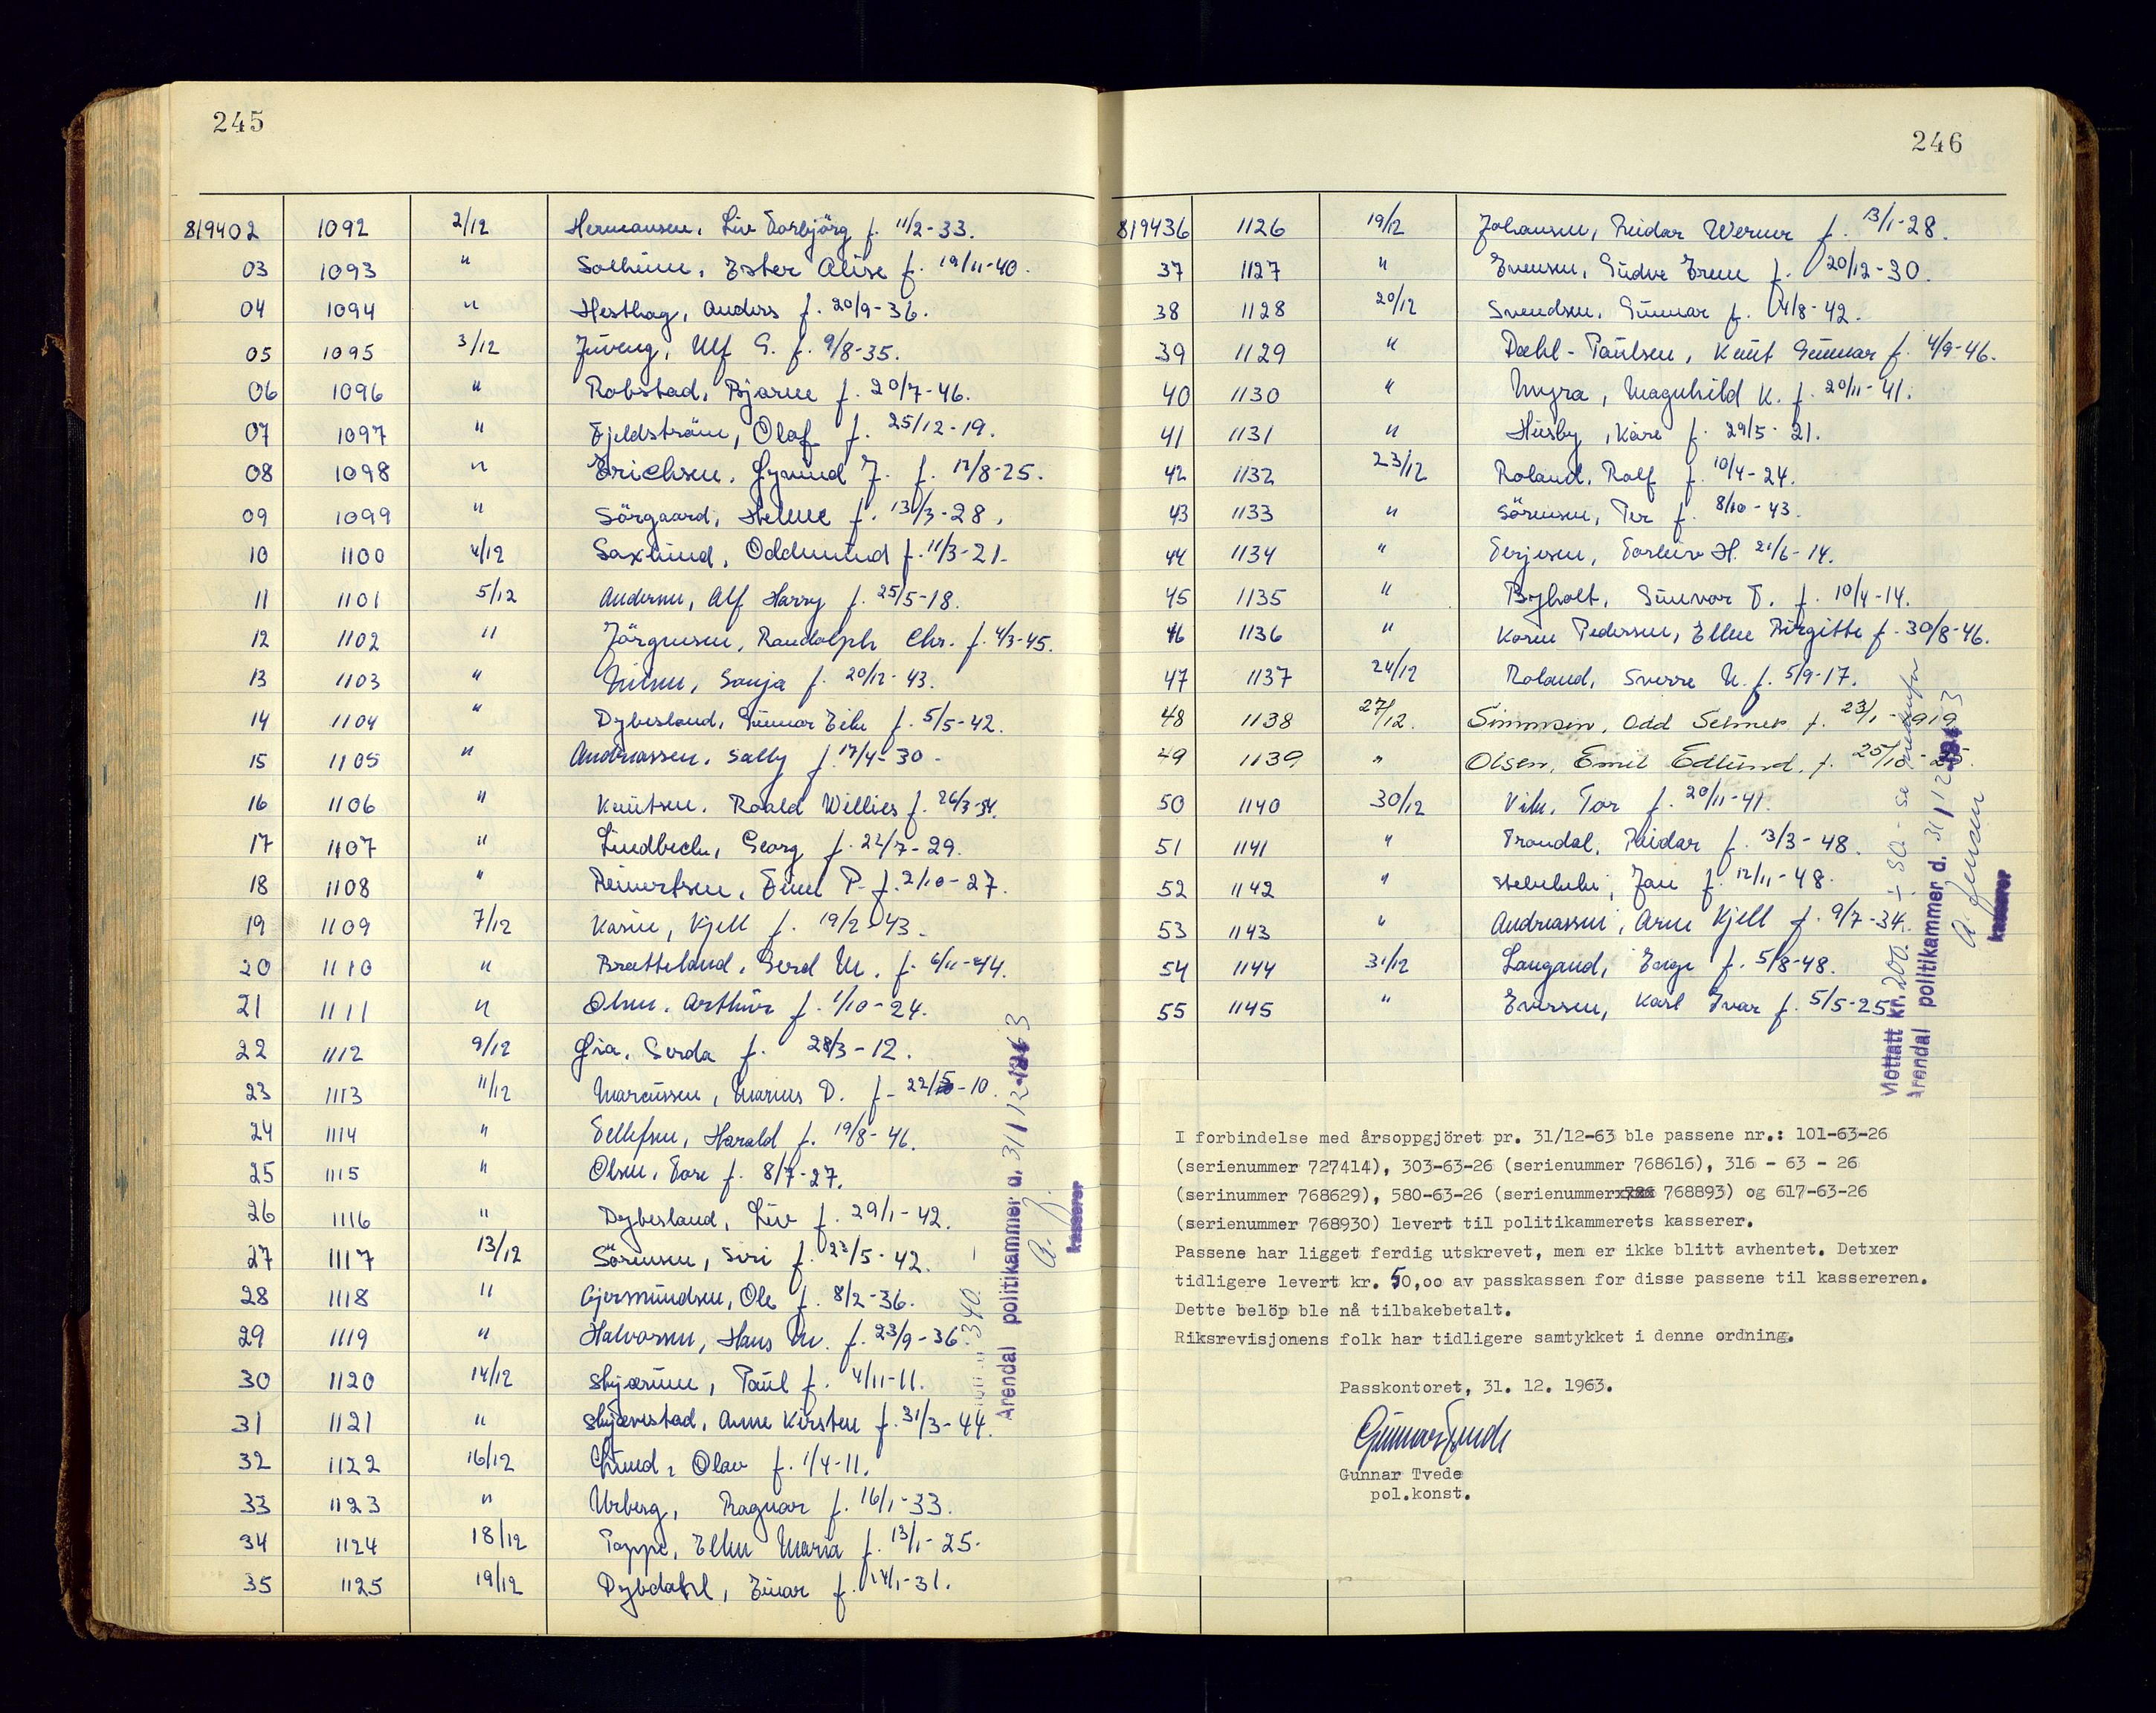 245
819402 1092 2/12 Hermansen, Liv Torbjörg f. 11/2-33.
03 1093 " Solheim, Ester Alise f. 19/11-40.
04 1094 " Hesthag, Anders f. 20/9-36.
05 1095 3/12 Juveng, Ulf G. f. 9/8-35.
06 1096 " Robstad, Bjarne f. 20/7-46.
07 1097 " Fjeldström, Olaf f. 25/12-19.
08 1098 " Erichsen, Gjmund J. f. 12/8-25.
09 1099 " Sörgaard, Helene f. 13/3-28.
10 1100 4/12 Saxlund, Oddmund f. 11/3-21.
11 1101 5/12 Andersen, Alf Harry f. 25/5-18.
12 1102 " Jörgensen, Randolph Chr. f. 4/3-45.
13 1103 " Nilsen, Sonja f. 20/12-43.
14 1104 " Dybesland, Gunnar Eik f. 5/5-42.
15 1105 " Andreassen, Sally f. 17/4-30.
16 1106 " Knutsen, Roald Willies f. 26/3-34.
17 1107 " Lindbeck, Georg f. 22/7-29.
18 1108 " Reinertsen, Finn P. f. 2/10-27.
19 1109 7/12 Kasin, Kjell f. 19/2-43.
20 1110 " Bratteland, Gerd M. f. 6/11-44.
21 1111 " Olsen, Arthur f. 1/10-24.
22 1112 9/12 Gia, Gerda f. 28/3-12.
23 1113 11/12 Marcussen, Marius D. f. 22/5-10.
24 1114 " Tellefsen, Harald f. 19/8-46.
25 1115 " Olsen, Tore f. 8/7-27.
26 1116 " Dybesland, Liv f. 29/1-42.
27 1117 13/12 Sörensen, Siri f. 23/5-42.
28 1118 " Gjermundsen, Ole f. 8/2-36.
29 1119 " Halvorsen, Hans M. f. 23/9-36.
30 1120 14/12 Skjærum, Paul f. 4/11-11.
31 1121 " Skjævestad, Anne Kirsten f. 31/3-44.
32 1122 16/12 Lund, Olav f. 1/4-11.
33 1123 " Urberg, Ragnar f. 16/1-33.
34 1124 18/12 Poppe, Ellen Maria f. 13/1-25.
35 1125 19/12 Dybdahl, Einar f. 14/1-31.
340.
Arendal politikammer d. 31/12 1963
A. J.
kasserer
246
819436 1126 19/12 Johansen, Reidar Werner f. 13/1-28.
37 1127 " Evensen, Gudve Irene f. 20/12-30.
38 1128 20/12 Svendsen, Gunnar f. 14/8-42.
39 1129 " Dæhl-Paulsen, Knut Gunnar f. 4/9-46.
40 1130 " Myra, Magnhild K. f. 20/11-41.
41 1131 " Huseby, Kåre f. 29/5-21.
42 1132 23/12 Roland, Rolf f. 10/4-24.
43 1133 " Sörensen, Per f. 8/10-43.
44 1134 " Terjesen, Torleiv H. 21/6-14.
45 1135 " Byholt, Gunvor T. f. 10/4-14.
46 1136 " Korne Pedersen, Ellen Birgitte f. 30/8-46.
47 1137 24/12 Roland, Sverre N. f. 5/9-17.
48 1138 27/12. Simonsen, Odd Selmer f. 23/1-1919
49 1139 " Olsen, Emil Edlund. f. 25/10-25.
50 1140 30/12 Vik, Tor f. 20/11-41.
51 1141 " Trondal, Reidar f. 13/3-48.
52 1142 " Stebekk, Jan f. 12/11-48.
53 1143 " Andreassen, Arne Kjell f. 9/7-34.
54 1144 31/12 Langand, Terge f. 5/8-48.
55 1145 " Eversen, Karl Ivar f. 5/5-25.
Mottatt kr. 200.- ÷ 50.- se nedenfor
Arendal politikammer d. 31/12 1963
A. Jensen
kasserer
I forbindelse med årsoppgjöret pr. 31/12-63 ble passene nr.: 101-63-26
(serienummer 727414), 303-63-26 (serienummer 768616), 316 - 63 - 26
(serinummer 768629), 580-63-26 (serienummerxxxx 768893) og 617-63-26
(serienummer 768930) levert til politikammerets kasserer.
Passene har ligget ferdig utskrevet, men er ikke blitt avhentet. Detxer
tidligere levert kr. 50,oo av passkassen for disse passene til kassereren.
Dette belöp ble nå tilbakebetalt.
Riksrevisjonens folk har tidligere samtykket i denne ordning.
Passkontoret, 31. 12. 1963.
Gunnar Tvede
Gunnar Tvede
pol.konst.